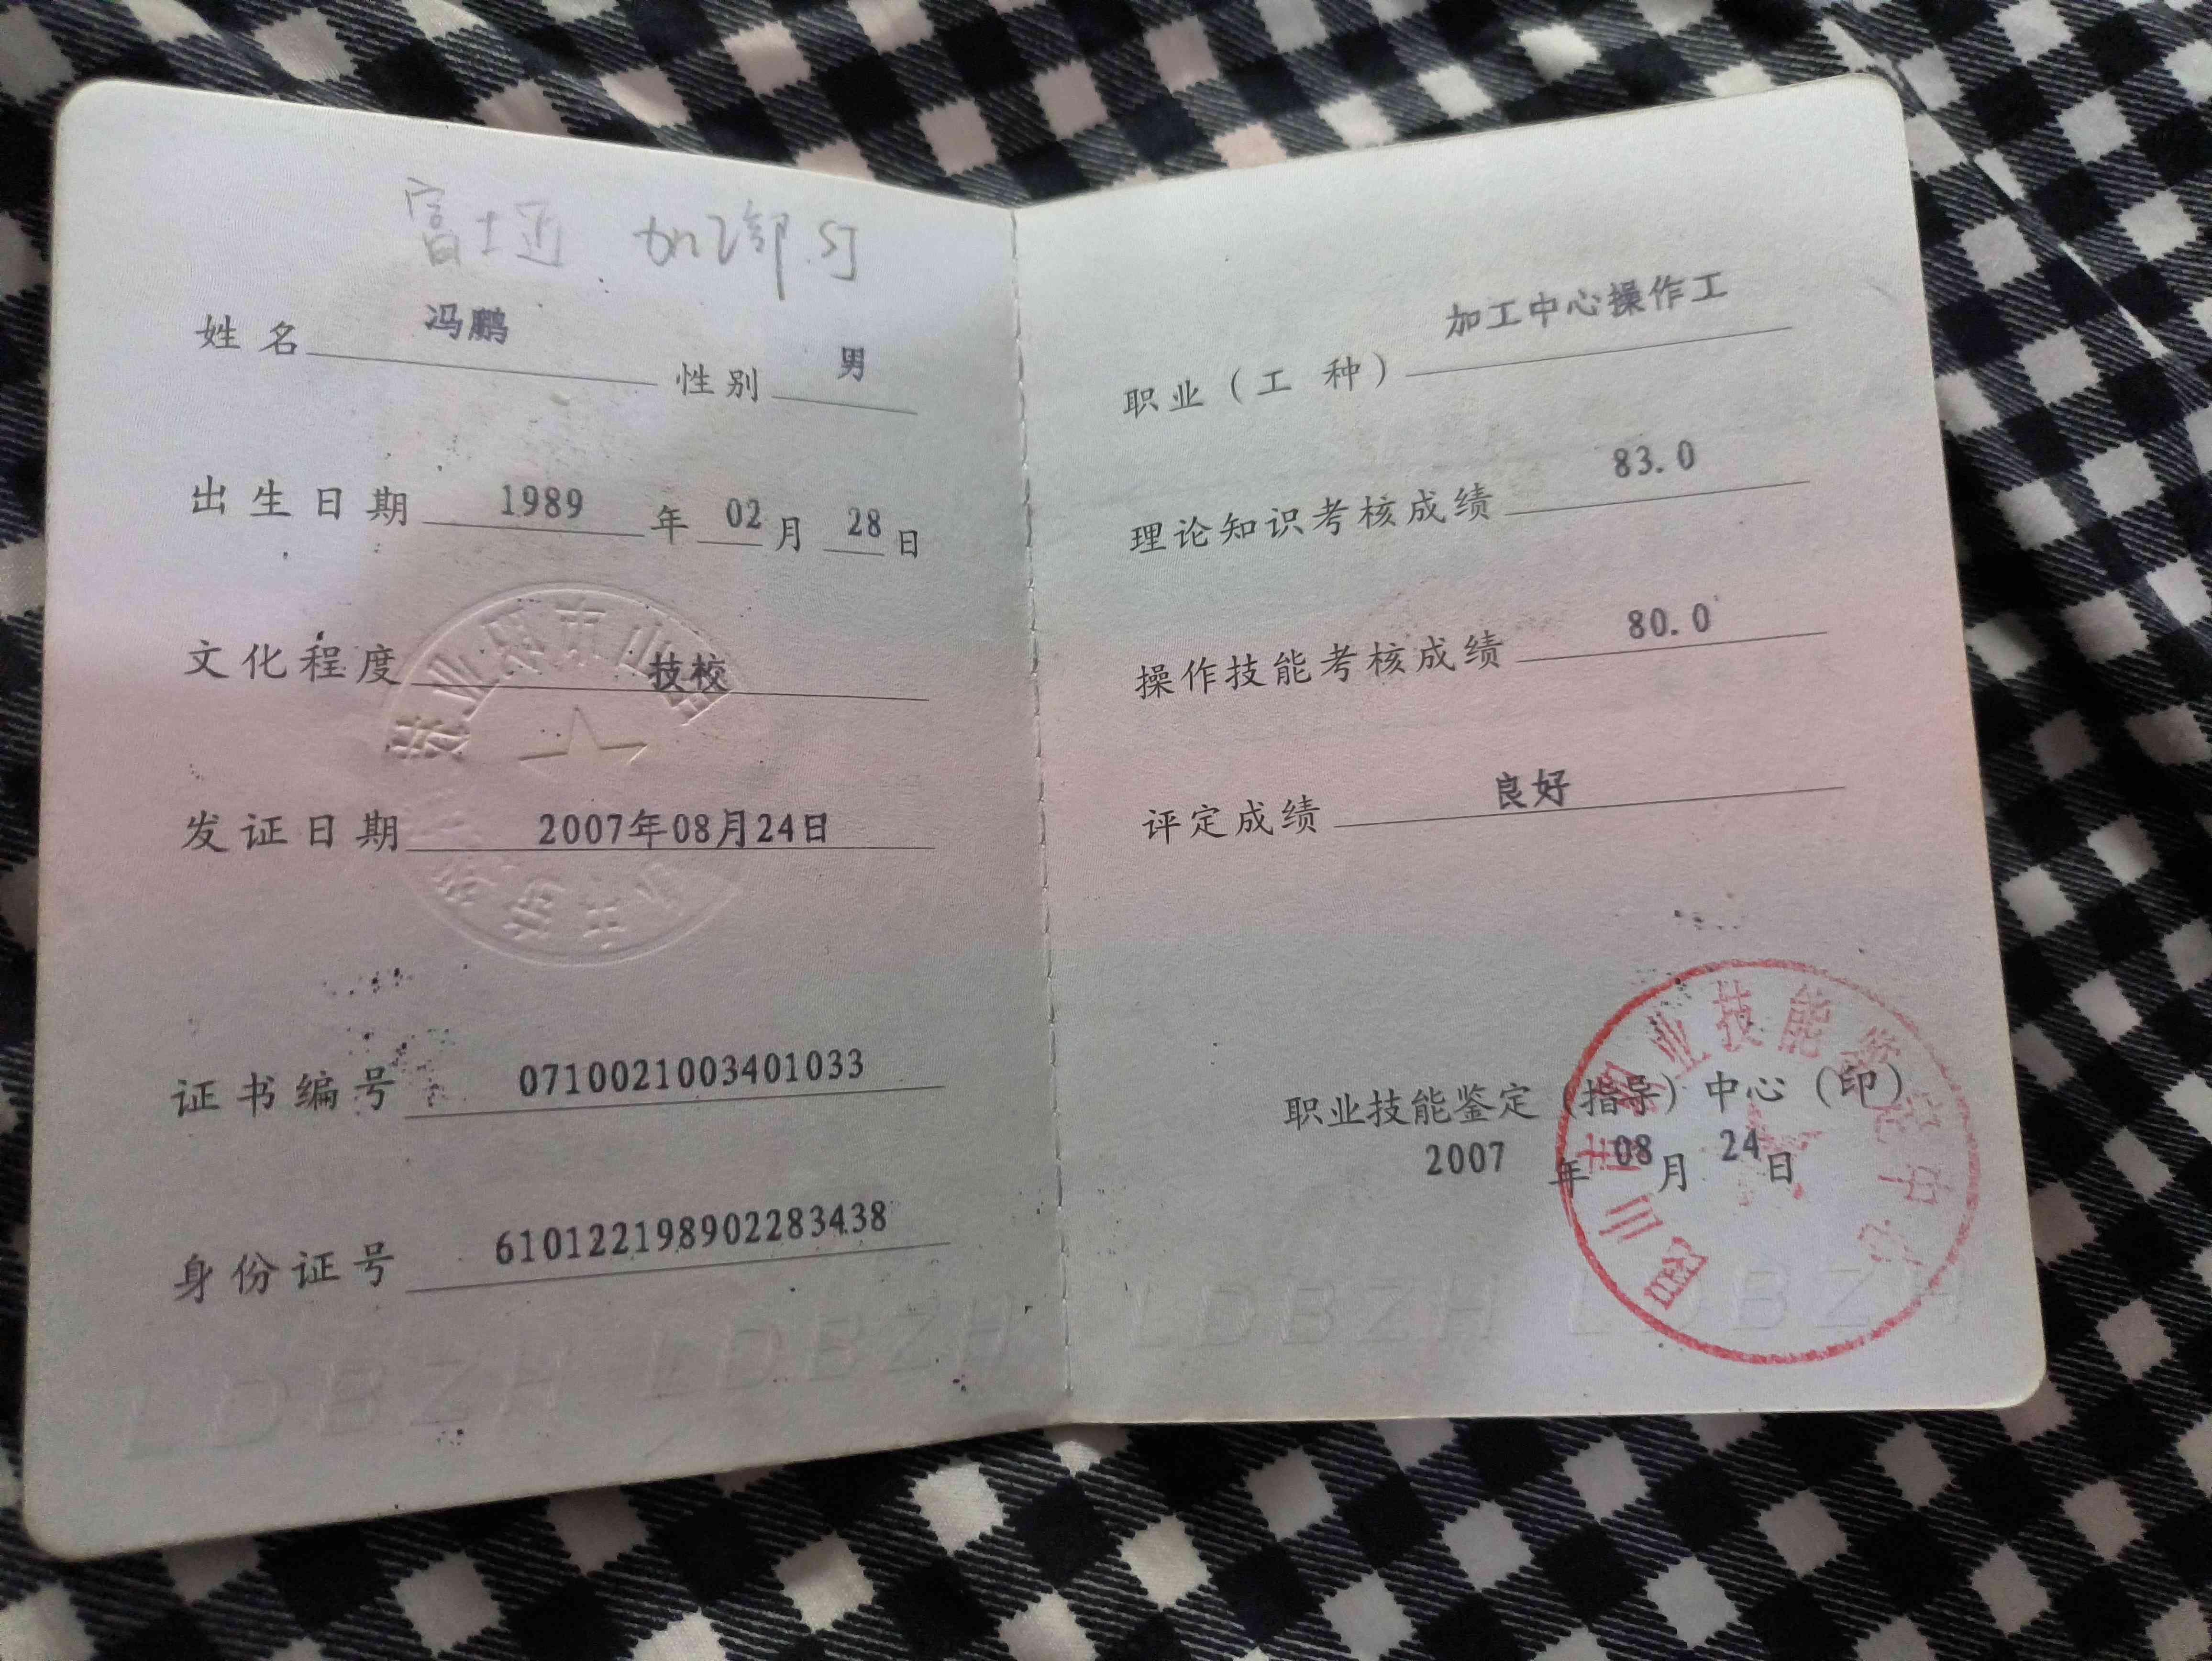 富士迈 加工部.SJ
姓名 冯鹏 性别 男
出生日期 1989 年 02 月 28 日
文化程度 技校
发证日期 2007年08月24日
证书编号 0710021003401033
身份证号 610122198902283438
LDBZH LDBZH
职业（工 种） 加工中心操作工
理论知识考核成绩 83.0
操作技能考核成绩 80.0
评定成绩 良好
职业技能鉴定（指导）中心（印）
2007 年 08 月 24 日
昆山市职业技能鉴定中心
LDBZH LDBZH